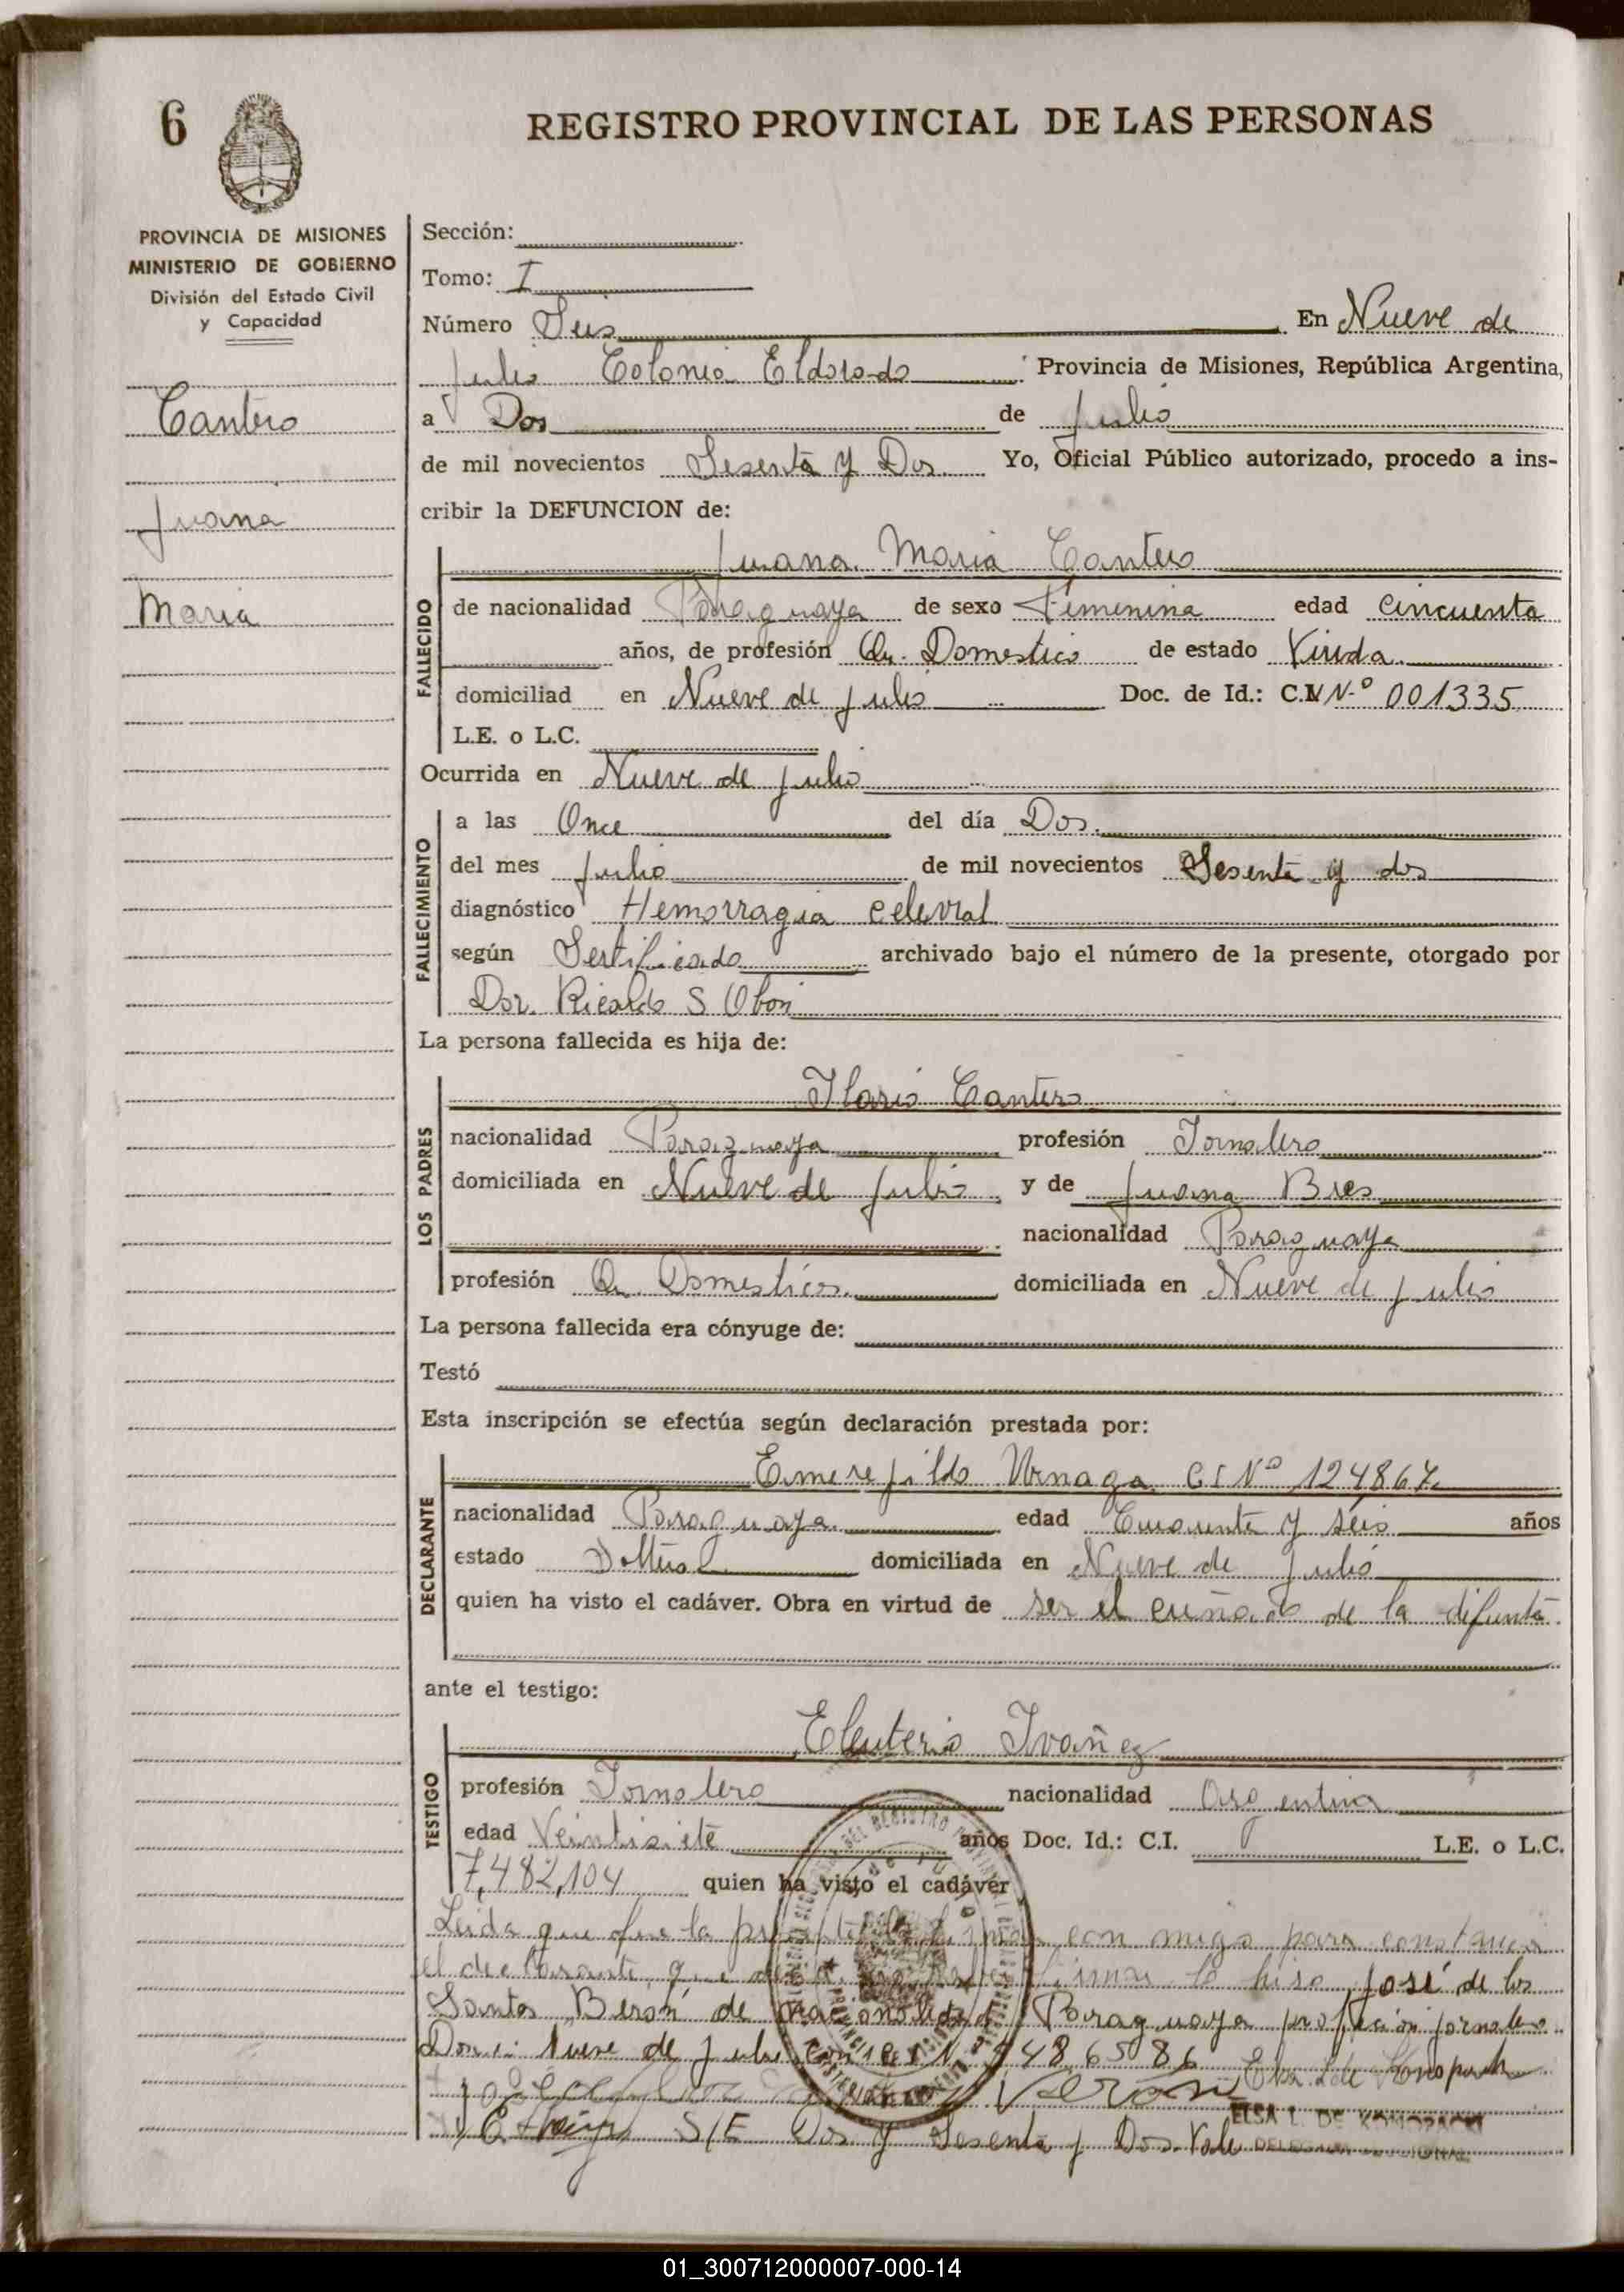 6
REGISTRO PROVINCIAL DE LAS PERSONAS
PROVINCIA DE MISIONES
MINISTERIO DE GOBIERNO
División del Estado Civil
y Capacidad
Cantero
Juana
Maria
Sección:
Tomo: I
Número Seis En Nueve de
Julio Colonia Eldorado Provincia de Misiones, República Argentina,
a Dos de Julio
de mil novecientos Sesenta y Dos Yo, Oficial Público autorizado, procedo a ins-
cribir la DEFUNCION de:
Juana Maria Cantero
FALLECIDO
de nacionalidad Paraguaya de sexo Femenina edad Cincuenta
años, de profesión Qu. Domestico de estado Viuda
domiciliad en Nueve de Julio Doc. de Id.: C.I. Nº 001335
L.E. o L.C.
Ocurrida en Nueve de Julio
FALLECIMIENTO
a las Once del día Dos.
del mes Julio de mil novecientos Sesenta y dos
diagnóstico Hemorragia Celevral
según Sertificado archivado bajo el número de la presente, otorgado por
Dor. Ricardo S Obon
La persona fallecida es hija de:
LOS PADRES
Ilario Cantero
nacionalidad Paraguaya profesión Jornalero
domiciliada en Nueve de Julio y de Juana Bres
nacionalidad Paraguaya
profesión Qu. Domesticos. domiciliada en Nueve de Julio
La persona fallecida era cónyuge de:
Testó
Esta inscripción se efectúa según declaración prestada por:
DECLARANTE
Emerejildo CI Nº 124867
nacionalidad Paraguaya edad Cincuenta y séis años
estado domiciliada en Nueve de Julio
quien ha visto el cadáver. Obra en virtud de ser el cuñado de la difunta.
ante el testigo:
TESTIGO
Eleuterio Ivañez
profesión Jornalero nacionalidad Argentina
edad Veintisiete años Doc. Id.: C.I. L.E. o L.C.
7,482,104 quien ha visto el cadáver
Leida que fue la presente la firman con migo para constancia
el declarante que firmar lo hiso José de los
Santos Berón de nacionalidad Paraguaya profecion jornalero
Domi. Nueve de Julio con 486586
Veron
ELSA L. DE
S/E Dos y Sesenta y Dos Vale
01_300712000007-000-14